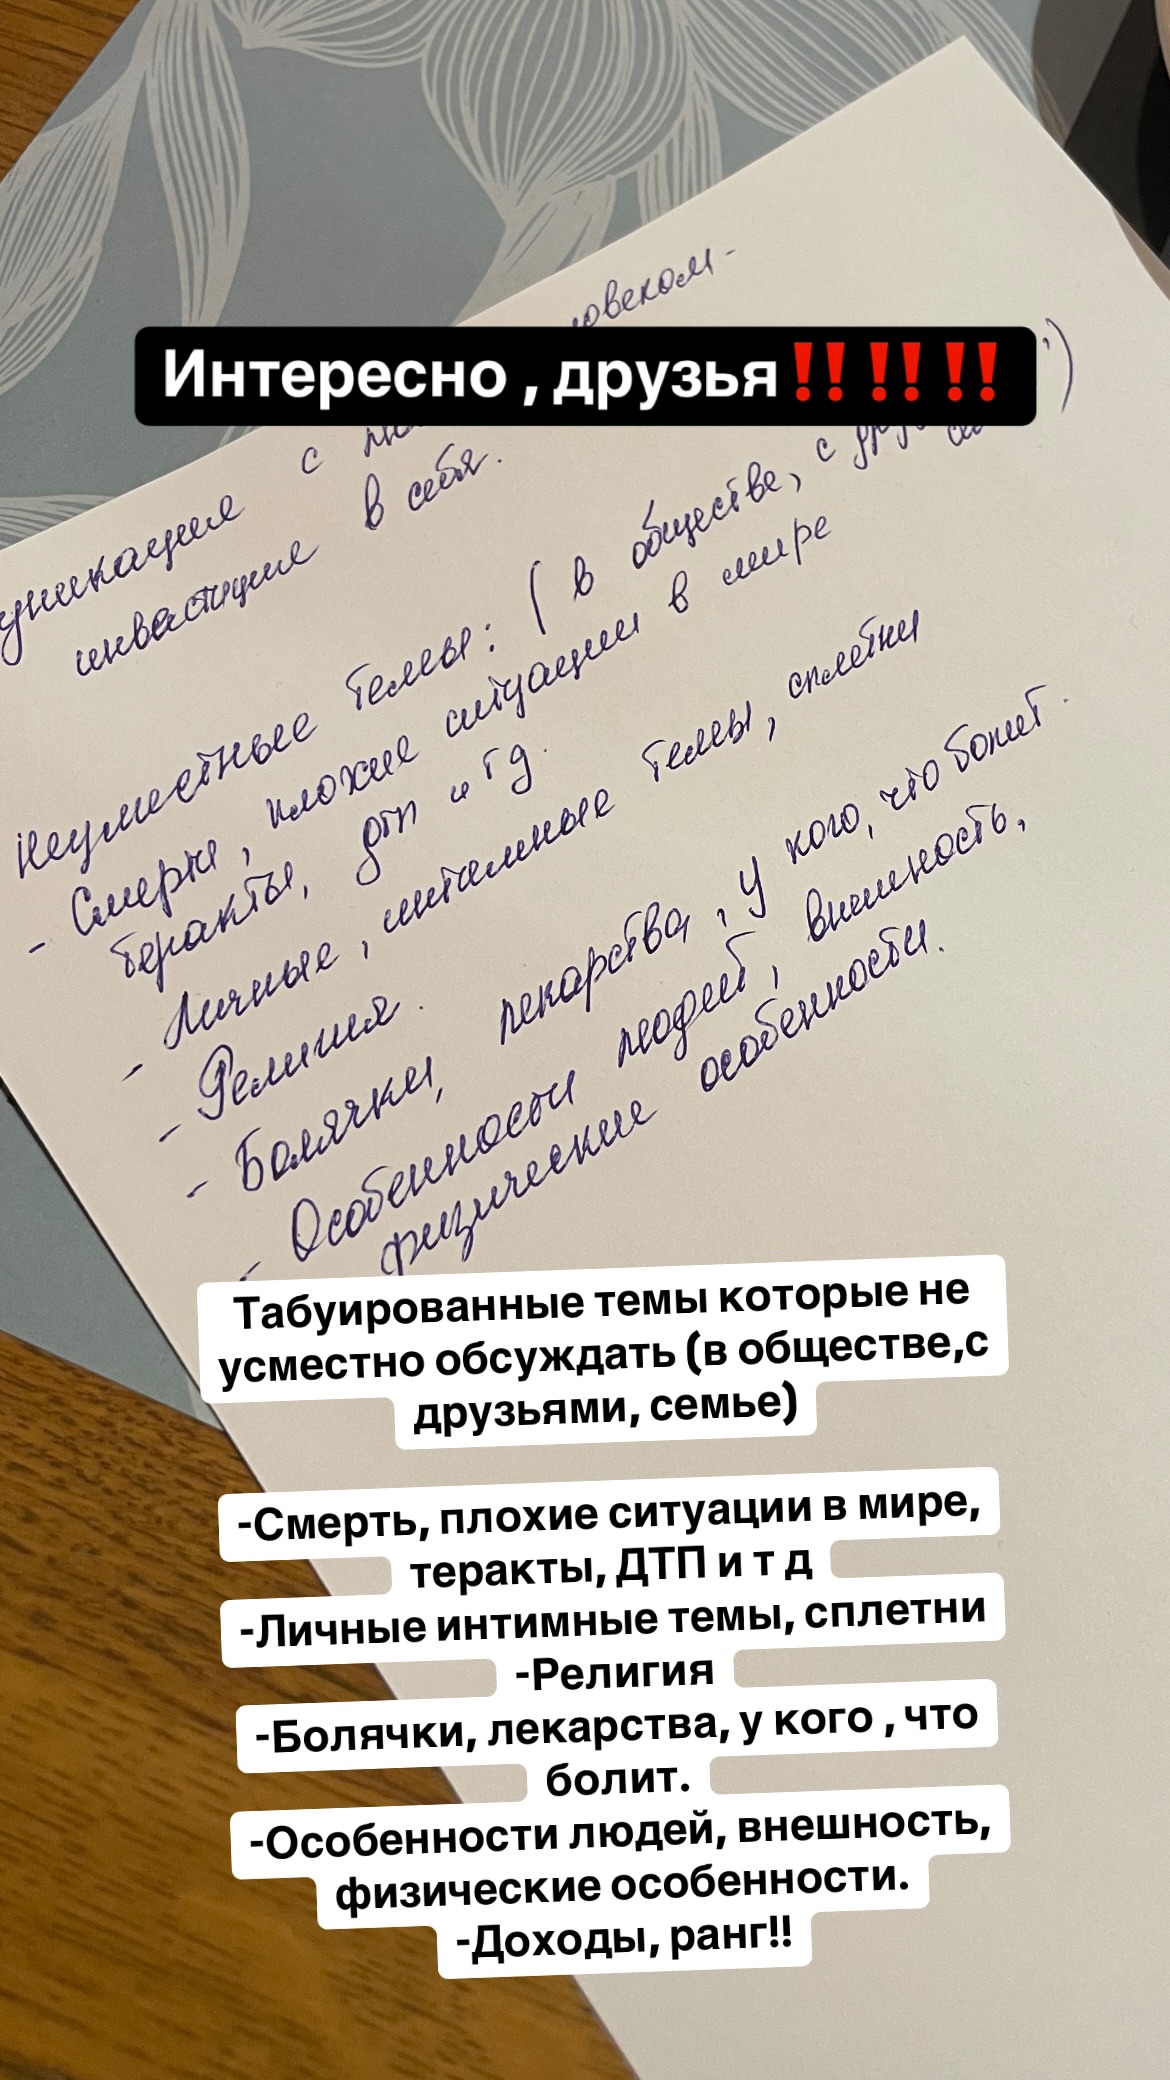 овеком -
Интересно , друзья‼️‼️‼️
уникация с
инвестиция в себя.
Неуместные темы: ( в обществе, с друз )
- Смерти, плохие ситуации в мире
теракты, дтп и тд.
- Личные, интимные темы, сплетни
- Религия.
- Болячки, лекарства, у кого, что болит.
- Особенности людей, внешность,
физические особенности.
Табуированные темы которые не
усместно обсуждать (в обществе,с
друзьями, семье)
-Смерть, плохие ситуации в мире,
теракты, ДТП и т д
-Личные интимные темы, сплетни
-Религия
-Болячки, лекарства, у кого , что
болит.
-Особенности людей, внешность,
физические особенности.
-Доходы, ранг!!